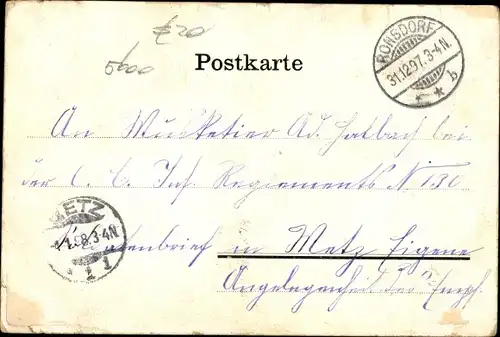 £20
5000
Postkarte
RONSDORF
31.12.97. 3-4 N.
* b
An Musketier Ad. Halbach bei
der C. C. Inf. Regiements N 130
METZ
1.1.98. 3-4N.
1 1
Soldatenbrief in Metz Eigene
Angelegenheit des Empf.